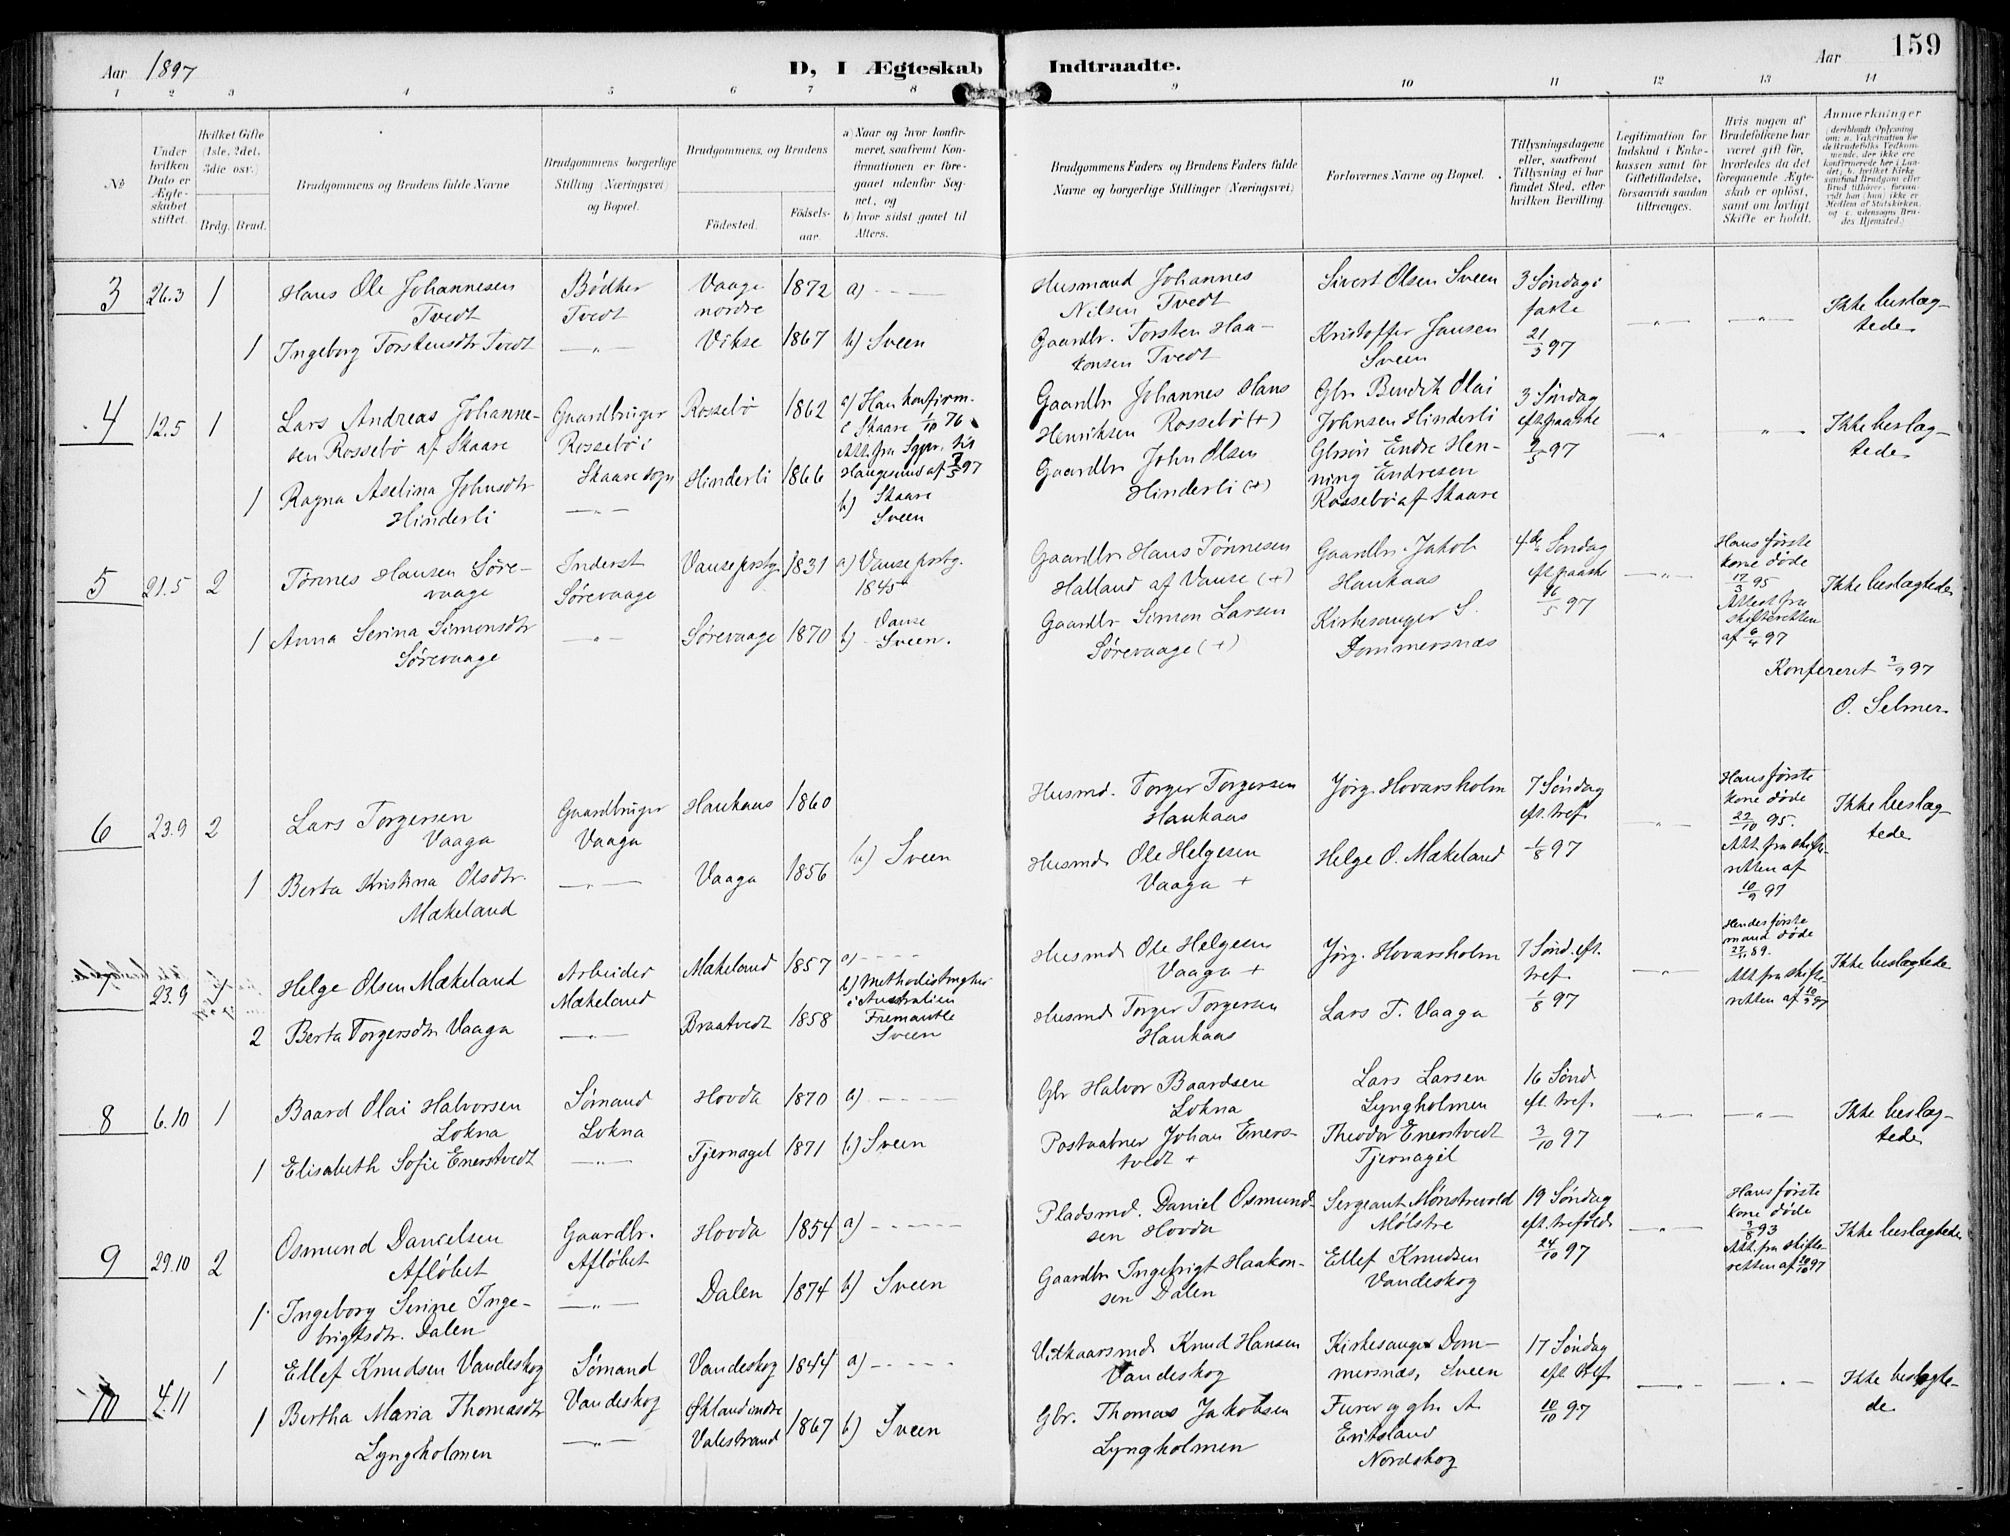 Aar 1897
D, I Ægteskab Indtraadte.
Aar
159
1 2 3 4 5 6 7 8 9 10 11 12 13 14
No
Under hvilken Dato er Ægteskabet stiftet.
Hvilket Gifte (1ste, 2det, 3die osv.)
Brdg. Brud.
Brudgommens og Brudens fulde Navne
Brudgommens borgerlige Stilling (Næringsvei) og Bopæl.
Brudgommens, og Brudens
Fødested.
Fødselsaar.
a) Naar og hvor konfirmeret, saafremt Konfirmationen er foregaaet udenfor Sognet, og
b) hvor sidst gaaet til Alters.
Brudgommens Faders og Brudens Faders fulde Navne og borgerlige Stillinger (Næringsvei)
Forlovernes Navne og Bopæl.
Tillysningsdagene eller, saafremt Tillysning ei har fundet Sted, efter hvilken Bevilling.
Legitimation for Indskud i Enkekassen samt for Giftetilladelse, forsaavidt saadan tiltrænges.
Hvis nogen af Brudefolkene har været gift før, hvorledes da det foregaaende Ægteskab er opløst, samt om lovligt Skifte er holdt.
Anmærkninger
3 26.3 1 Hans Ole Johannesen Tvedt
Bødker Tvedt
Vaage nordre 1872 a) — — —
Husmand Johannes Nilsen Tvedt
Sivert Olsen Sveen
3 Søndag i faste 21/3 97
— „ —
— „ —
Ikke beslægtede
1 Ingeborg Torstensdtr Tvedt
— „ —
Vikse 1867 b) Sveen
Gaardbr. Torsten Haakonsen Tvedt
Kristoffer Jansen Sveen
4 12.5 1 Lars Andreas Johannesen Rossebø af Skaare
Gaardbruger Rossebø i Skaare sogn
Rossebø 1862 a) Han konfirm. i Skaare 1/10 76. Att. fra Sgpr. til Haugesund af 7/5 97
Gaardbr Johannes Hans Henriksen Rossebø (+)
Gbr Bendik Olai Johnsen Hinderli
3 Søndag eft. paaske 9/5 97
„
„
Ikke beslægtede
1 Ragna Aselina Johnsdtr Hinderli
— „ —
Hinderli 1866 b) Skaare Sveen
Gaardbr John Olsen Hinderli (+)
Gbrsøn Endre Henning Endresen Rossebø af Skaare
5 21.5 2 Tønnes Hansen Sørevaage
Inderst Sørevaage
Vanse prstg. 1831 a) Vanse prstg. 1845
Gaardbr Hans Tønnesen Halland af Vanse (+)
Gaardbr. Jakob Haukaas
4de Søndag eft. paaske 16/5 97
— „ —
Hans første kone døde 17/3 95 Attest fra skifteretten af 6/4 97
Ikke beslægtede
1 Anna Serina Simonsdtr Sørevaage
— „ —
Sørevaage 1870 b) Vanse Sveen.
Gaardbr Simon Larsen Sørevaage (+)
Kirkesanger S. Dommersnæs
Konfereret 2/9 97
O. Selmer.
6 23.9 2 Lars Torgersen Vaaga
Gaardbruger Vaaga
Haukaas 1860
Husmd. Torger Torgersen Haukaas
Jørg. Hovarsholm
7 Søndag eft. tref. 1/8 97
— „ —
Hans første kone døde 22/10 95. Att. fra skifteretten af 10/9 97
Ikke beslægtede
1 Berta Kristina Olsdtr. Mækeland
— „ —
Vaaga 1856 b) Sveen
Husmd Ole Helgesen Vaaga +
Helge O. Mækeland
7 23.9 1 Helge Olsen Mækeland
Arbeider Mækeland
Mækeland 1857 a) — — — —
b) Methodistmgher i Australien Fremantle Sveen
Husmd Ole Helgesen Vaaga +
Jørg. Hovarsholm
7 Sønd. eft. tref 1/8 97
— „ —
Hendes første mand døde 89. Att. fra skifteretten af 10/9 97
Ikke beslægtede
2 Berta Torgersdtr Vaaga
— „ —
Braatvedt 1858
Husmd Torger Torgersen Haukaas
Lars T. Vaaga
8 6.10 1 Baard Olai Halvorsen Lokna
Sømand Lokna
Hovda 1870 a) — — — —
Gbr Halvor Baardsen Lokna
Lars Larsen Lyngholmen
16 Sønd eft. tref. 3/10 97
— „ —
— „ —
Ikke beslægtede
1 Elisabeth Sofie Enerstvedt
— „ —
Tjernagel 1871 b) Sveen
Postaabner Johan Enerstvedt +
Theodor Enerstvedt Tjernagel
9 29.10 2 Osmund Danielsen Afløbet
Gaardbr. Afløbet
Hovda 1854 a) — — — —
Pladsmd. Daniel Osmundsen Hovda
Sergeant Mønstrevold Mølstre
19 Søndag eft. trefold. 24/10 97
— „ —
Hans første kone døde 3/8 93 Att. fra skifteretten af 10/10 97
Ikke beslægtede
1 Ingeborg Serine Ingebrigtsdtr. Dalen
— „ —
Dalen 1874 b) Sveen
Gaardbr Ingebrigt Haakonsen Dalen
Ellef Knudsen Vandeskog
10 4.11 1 Ellef Knudsen Vandeskog
Sømand Vandeskog
Vandeskog 1844 a) — — — —
Vilkaarsmd Knud Hansen Vandeskog
Kirkesanger Dommersnæs, Sveen
17 Søndag eft. tref 10/10 97
— „ —
— „ —
Ikke beslægtede
1 Bertha Maria Thomasdtr Lyngholmen
— „ —
Økland indre Valestrand 1867 b) Sveen
Gbr. Thomas Jakobsen Lyngholmen
Furer og gbr. A. Eritsland Nordskog